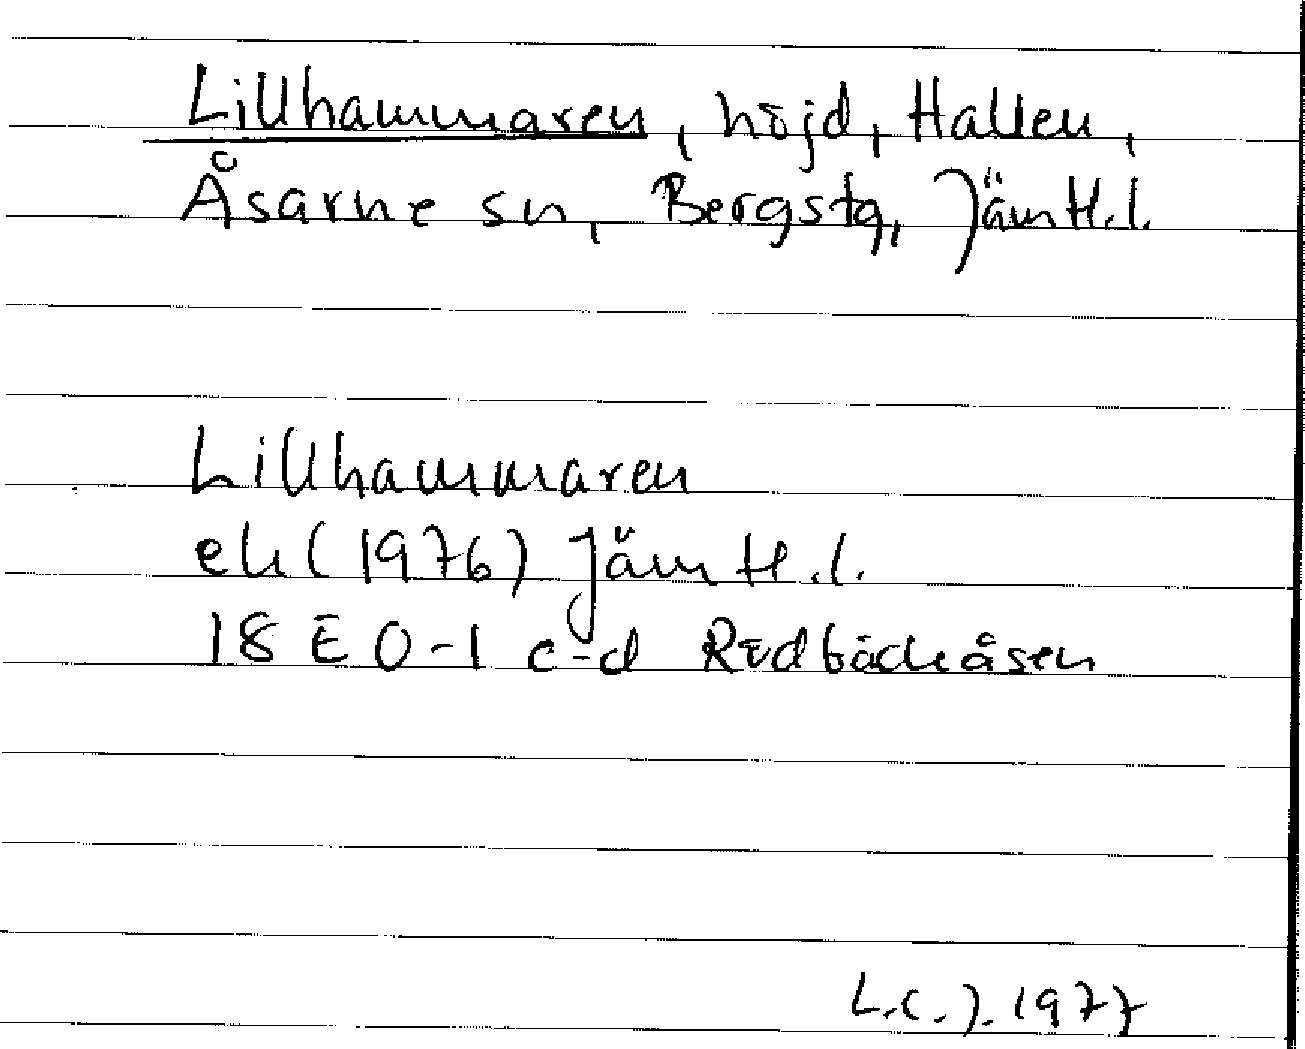 Lillhammaren, höjd, Hallen,
Åsarne sn, Bergs tg, Jämtl. l.
Lillhammaren
ek (1976) Jämtl. l.
18 E 0-1 c-d Rödbäckåsen
L.C.J. 1977